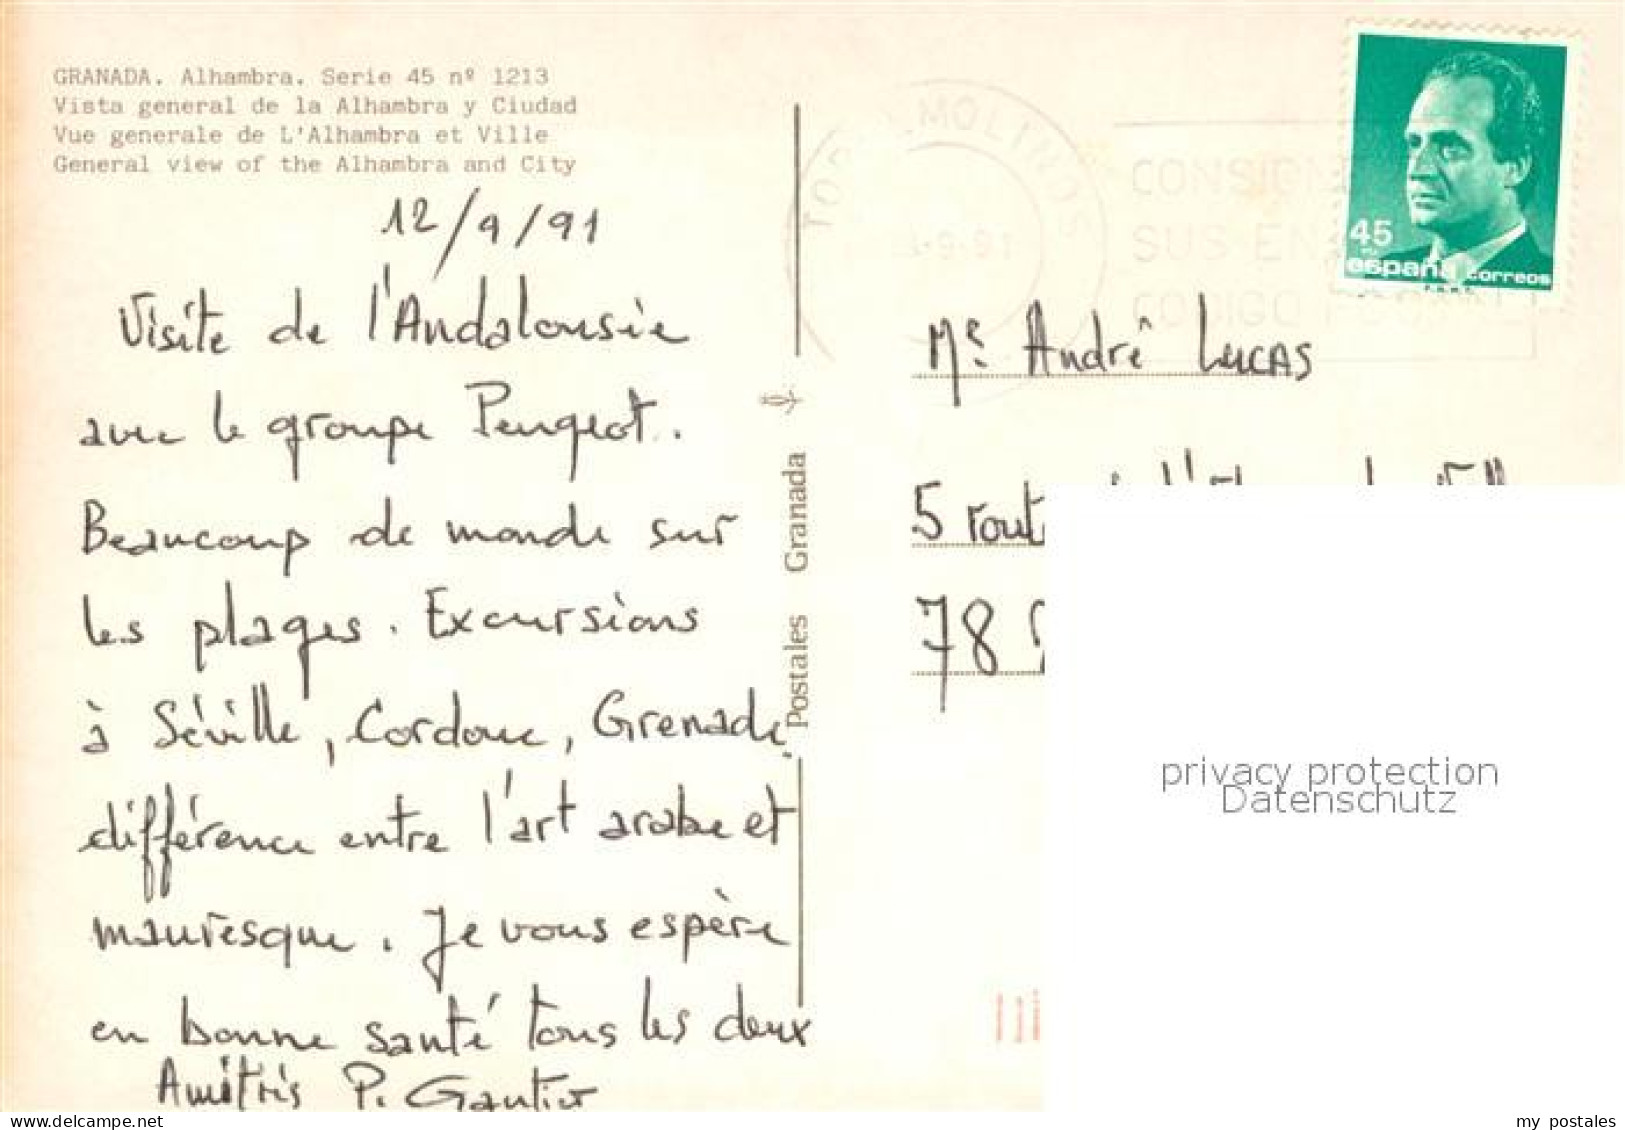 GRANADA. Alhambra. Serie 45 nº 1213
Vista general de la Alhambra y Ciudad
Vue generale de L'Alhambra et Ville
General view of the Alhambra and City
12/9/91
Visite de l'Andalousie
avec le groupe Peugeot.
Beaucoup de monde sur
les plages. Excursions
à Séville, Cordoue, Grenade.
différence entre l'art arabe et
mauresque. Je vous espère
en bonne santé tous les deux
Amitiés P. Gautier
Postales Granada
TORREMOLINOS
-9-91
CONSIGNE
SUS EN
CODIGO POSTAL
45
españa correos
Mr André LUCAS
5 route
78
privacy protection
Datenschutz
my postales